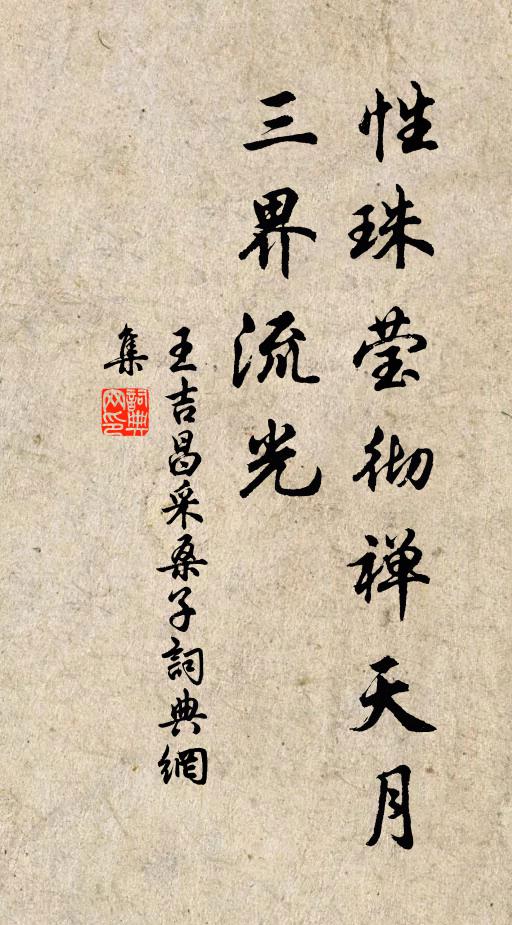 性珠莹彻禅天月
三界流光
王吉昌采桑子詞典網
集
詞典网印